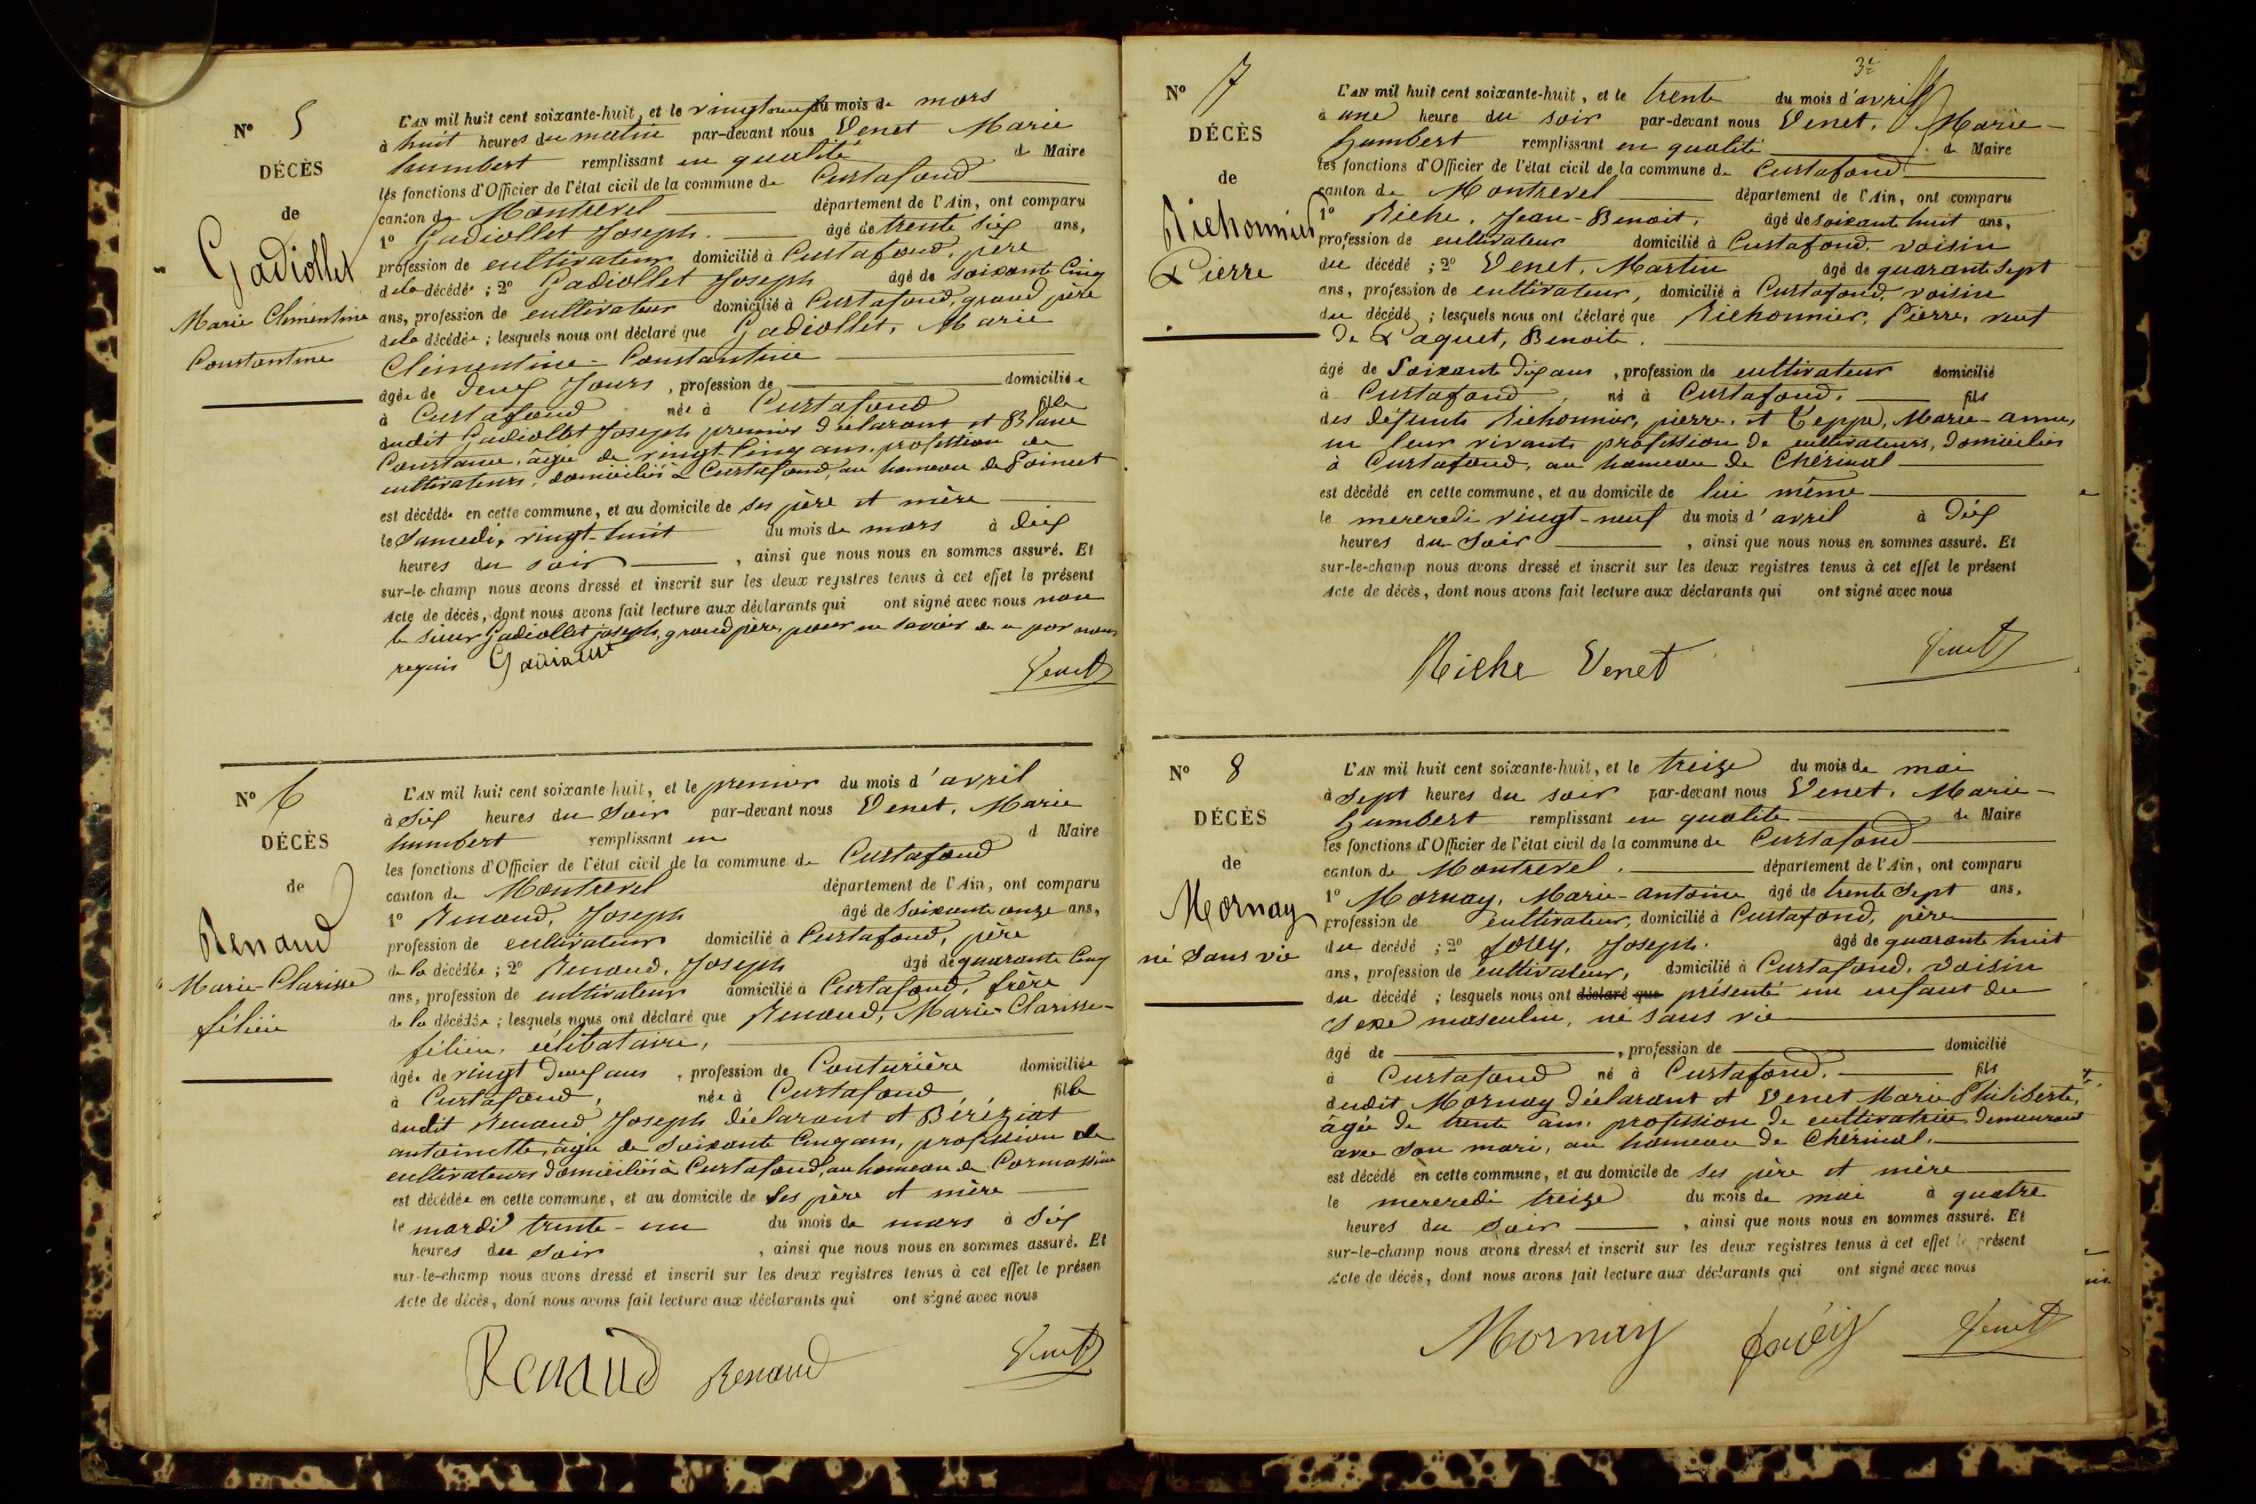 N° 5
DÉCÈS
de
Gadiollet
Marie Clémentine
Constantine
L'AN mil huit cent soixante-huit, et le vingt neuf du mois de mars
à huit heures du matin par-devant nous Venet Marie
humbert remplissant en qualité de Maire
les fonctions d'Officier de l'état civil de la commune de Curtafond
canton de Montrevel département de l'Ain, ont comparu
1° Gadiollet Joseph. âgé de trente six ans,
profession de cultivateur domicilié à Curtafond, père
de la décédée ; 2° Gadiollet Joseph âgé de soixante Cinq
ans, profession de cultivateur domicilié à Curtafond, grand père
de la décédée ; lesquels nous ont déclaré que Gadiollet, Marie
Clémentine-Constantine
âgée de Deux Jours, profession de domiciliée
à Curtafond née à Curtafond fille
dudit Gadiollet Joseph premier déclarant et Blanc
Constance, âgée de vingt Cinq ans, profession de
cultivateurs, domiciliés à Curtafond, au hameau de
est décédée en cette commune, et au domicile de ses père et mère
le Samedi, vingt-huit du mois de mars à dix
heures du soir, ainsi que nous nous en sommes assuré. Et
sur-le-champ nous avons dressé et inscrit sur les deux registres tenus à cet effet le présent
Acte de décès, dont nous avons fait lecture aux déclarants qui ont signé avec nous non
le sieur Gadiollet joseph, grand père, pour ne savoir de ce par nous
requis Gadiollet
Venet
N° 6
DÉCÈS
de
Renaud
Marie-Clarisse
félicie
L'AN mil huit cent soixante huit, et le premier du mois d'avril
à six heures du Soir par-devant nous Venet, Marie
humbert remplissant en d Maire
les fonctions d'Officier de l'état civil de la commune de Curtafond
canton de Montrevel département de l'Ain, ont comparu
1° Renaud, Joseph âgé de soixante onze ans,
profession de cultivateur domicilié à Curtafond, père
de la décédée ; 2° Renaud, Joseph âgé de quarante Cinq
ans, profession de cultivateur domicilié à Curtafond, frère
de la décédée ; lesquels nous ont déclaré que Renaud, Marie-Clarisse-
félicie, célibataire,
âgée de vingt Deux ans, profession de Couturière domiciliée
à Curtafond, née à Curtafond fille
dudit Renaud, Joseph déclarant et Béréziat
antoinette, âgée de soixante Cinq ans, profession de
cultivateurs domiciliés à Curtafond, au hameau de
est décédée en cette commune, et au domicile de Ses père et mère
le mardi trente-un du mois de mars à Six
heures du Soir, ainsi que nous nous en sommes assuré. Et
sur-le-champ nous avons dressé et inscrit sur les deux registres tenus à cet effet le présen
Acte de décès, dont nous avons fait lecture aux déclarants qui ont signé avec nous
Renaud Renaud Venet
3e
N° 7
DÉCÈS
de
Richonnier
Pierre
L'AN mil huit cent soixante-huit, et le trente du mois d'avril
à une heure du soir par-devant nous Venet, Marie-
humbert remplissant en qualité de Maire
les fonctions d'Officier de l'état civil de la commune de Curtafond
canton de Montrevel département de l'Ain, ont comparu
1° Riche, Jean-Benoit, âgé de soixante huit ans,
profession de cultivateur domicilié à Curtafond, voisin
du décédé ; 2° Venet, Martin âgé de quarante Sept
ans, profession de cultivateur, domicilié à Curtafond, voisin
du décédé ; lesquels nous ont déclaré que Richonnier, Pierre, veuf
de Paquet, Benoite.
âgé de Soixante Dix ans, profession de cultivateur domicilié
à Curtafond, né à Curtafond. fils
des défunts Richonnier, pierre, et Teppe, Marie-anne,
en leur vivants profession de cultivateurs, domiciliés
à Curtafond, au hameau de Chérinal
est décédé en cette commune, et au domicile de lui même
le mercredi vingt-neuf du mois d'avril à Dix
heures du Soir, ainsi que nous nous en sommes assuré. Et
sur-le-champ nous avons dressé et inscrit sur les deux registres tenus à cet effet le présent
Acte de décès, dont nous avons fait lecture aux déclarants qui ont signé avec nous
Riche Venet Venet
N° 8
DÉCÈS
de
Mornay
né Sans vie
L'AN mil huit cent soixante-huit, et le treize du mois de mai
à Sept heures du soir par-devant nous Venet, Marie-
humbert remplissant en qualité de Maire
les fonctions d'Officier de l'état civil de la commune de Curtafond
canton de Montrevel. département de l'Ain, ont comparu
1° Mornay, Marie-antoine âgé de trente Sept ans,
profession de cultivateur, domicilié à Curtafond, père
du décédé ; 2° Joseph. âgé de quarante huit
ans, profession de cultivateur, domicilié à Curtafond, voisin
du décédé ; lesquels nous ont déclaré que présenté un enfant du
sexe masculin, né sans vie
âgé de , profession de domicilié
à Curtafond né à Curtafond. fils
dudit Mornay déclarant et Venet Marie Philiberte,
âgée de trente ans, profession de cultivatrice demeurant
avec Son mari, au hameau de Chérinal.
est décédé en cette commune, et au domicile de ses père et mère
le mercredi treize du mois de mai à quatre
heures du Soir, ainsi que nous nous en sommes assuré. Et
sur-le-champ nous avons dressé et inscrit sur les deux registres tenus à cet effet le présent
Acte de décès, dont nous avons fait lecture aux déclarants qui ont signé avec nous
Mornay Venet